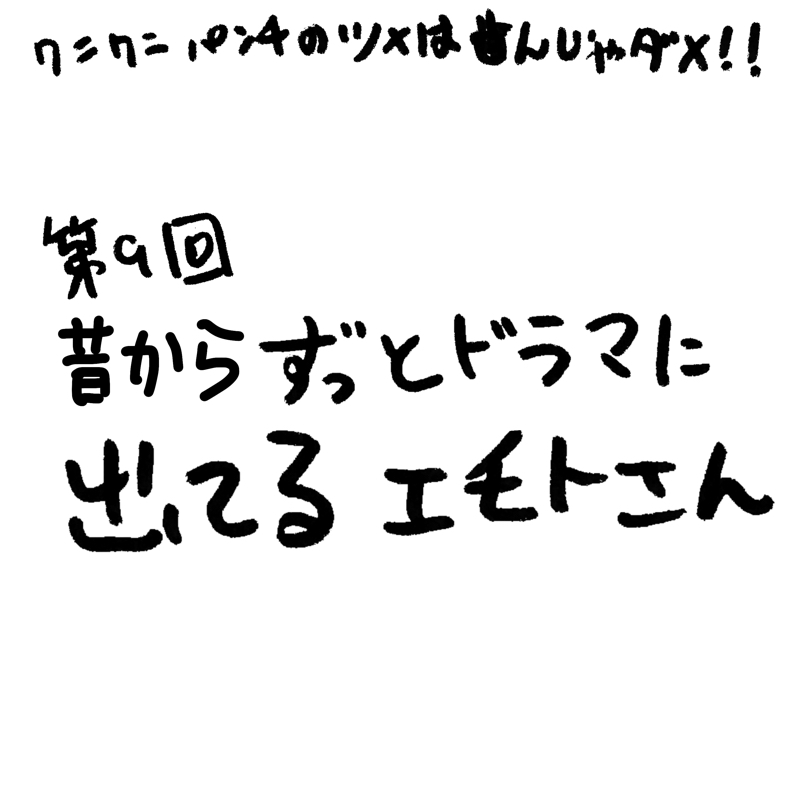 ワニワニパンチのツメは噛んじゃダメ!!
第9回
昔からずっとドラマに
出てるエモトさん